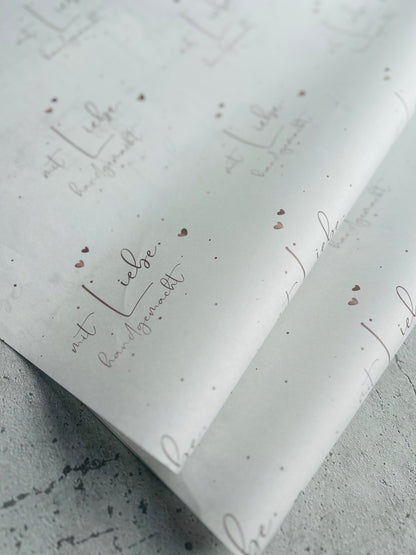 mit Liebe.
handgemacht
mit Liebe.
handgemacht
mit Liebe.
handgemacht
Liebe.
handgemacht
Liebe.
be.
be.